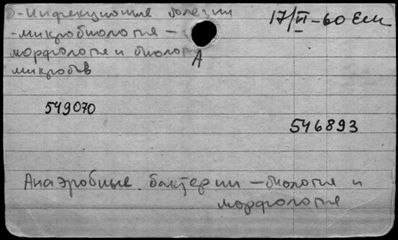 б-Инфекционные болезни 17/VI-60 Ем
-микробиология -
морфология и биология А
микробов
549070
546893
Анаэробные бактерии - биология и
морфология